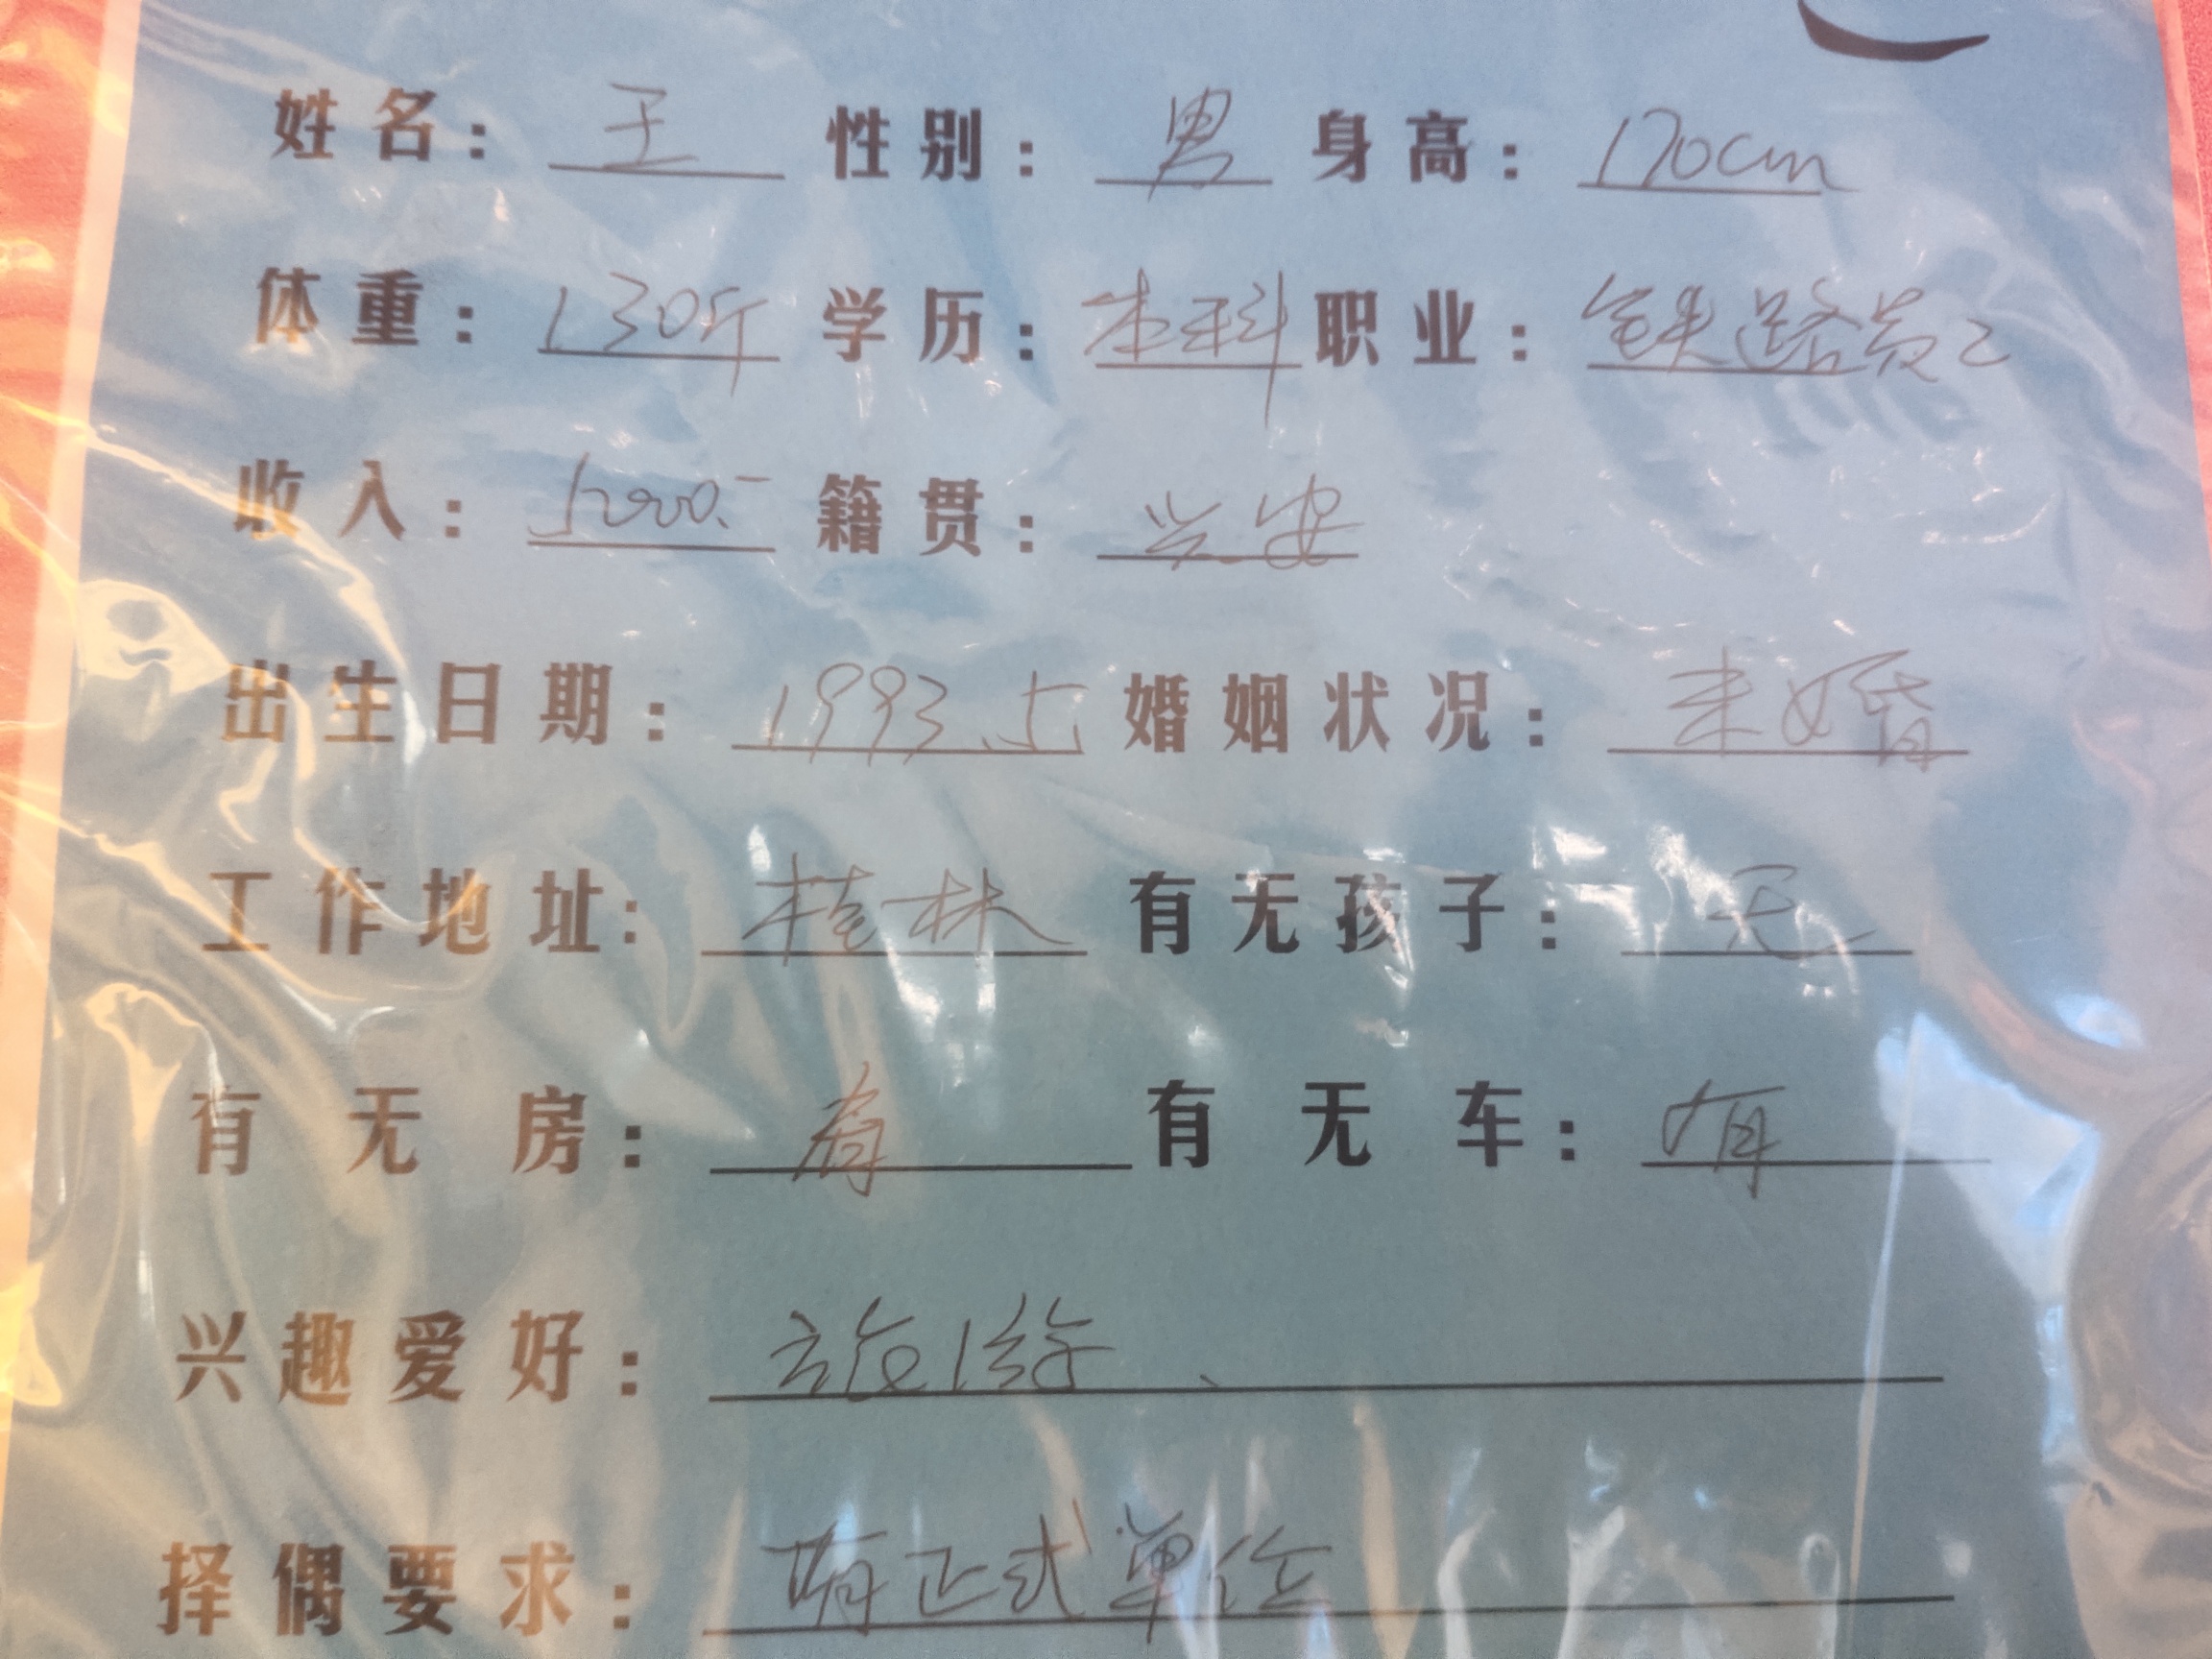 姓名：王 性别：男 身高：170cm
体重：130斤 学历：本科 职业：铁路员工
收入：5000.- 籍贯：兴安
出生日期：1993.5. 婚姻状况：未婚
工作地址：桂林 有无孩子：无
有无房：有 有无车：有
兴趣爱好：旅游、
择偶要求：有正式单位